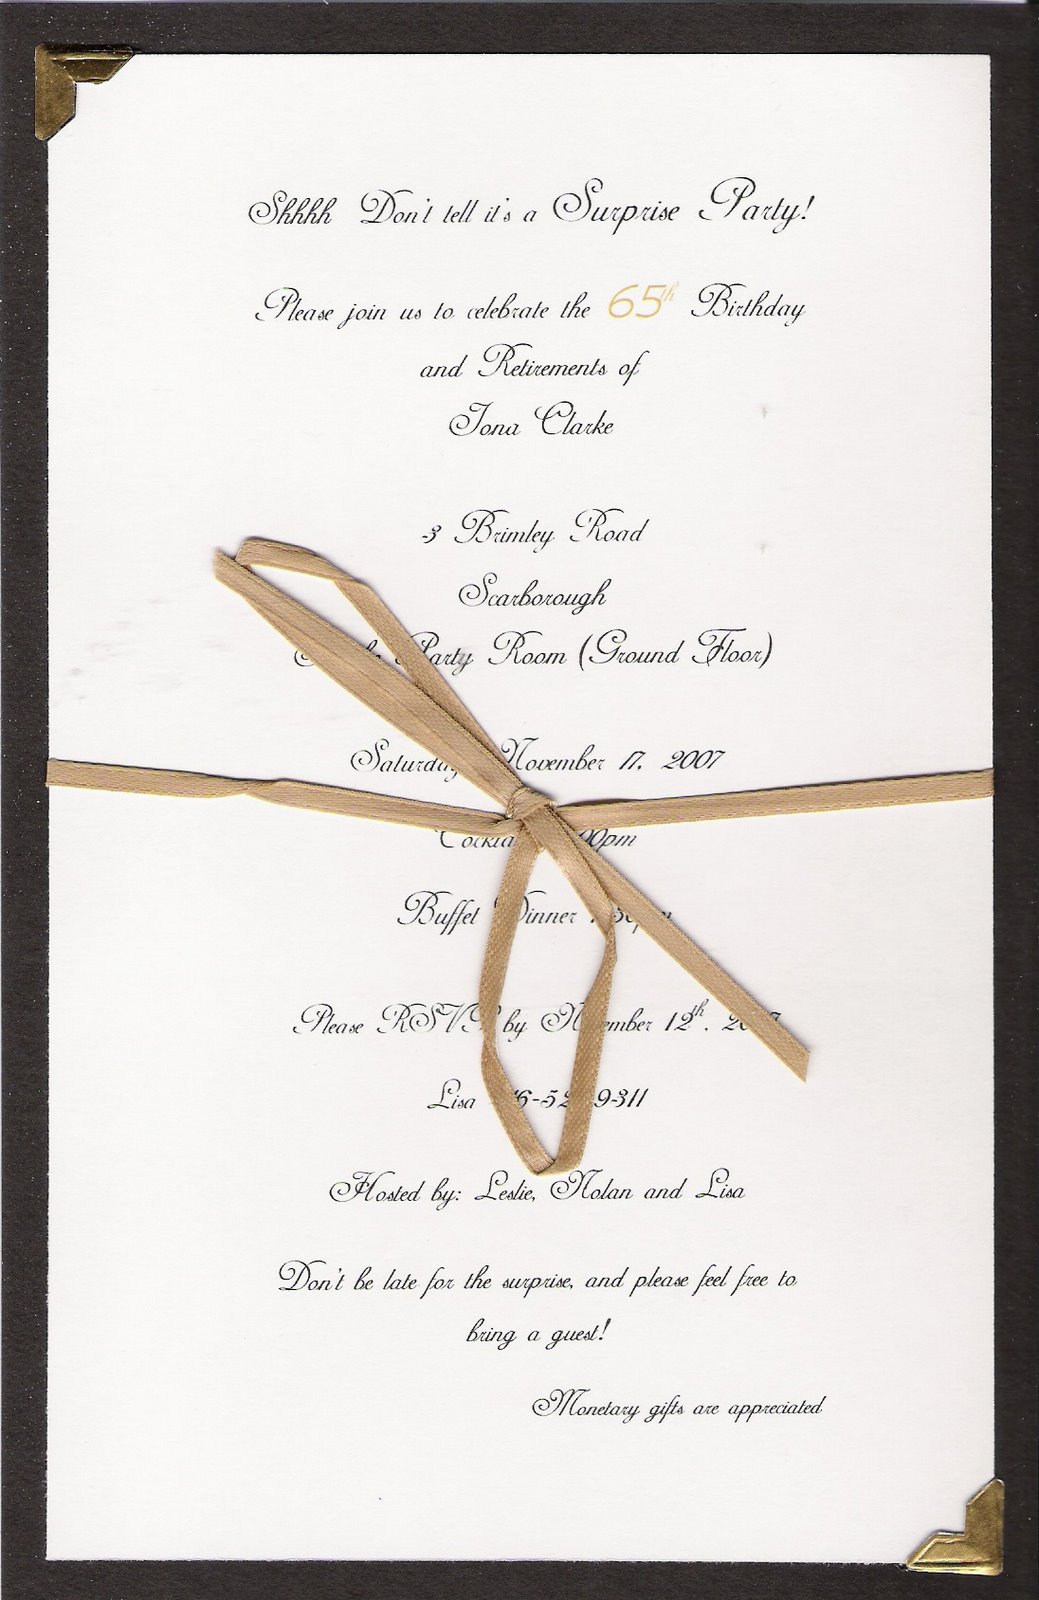 Shhhh Don't tell it's a Surprise Party!
Please join us to celebrate the 65th Birthday
and Retirements of
Iona Clarke
3 Brimley Road
Scarborough
Party Room (Ground Floor)
Saturday November 17, 2007
Buffet Dinner
Please RSVP by November 12th, 2007
Lisa
Hosted by: Leslie, Nolan and Lisa
Don't be late for the surprise, and please feel free to
bring a guest!
Monetary gifts are appreciated